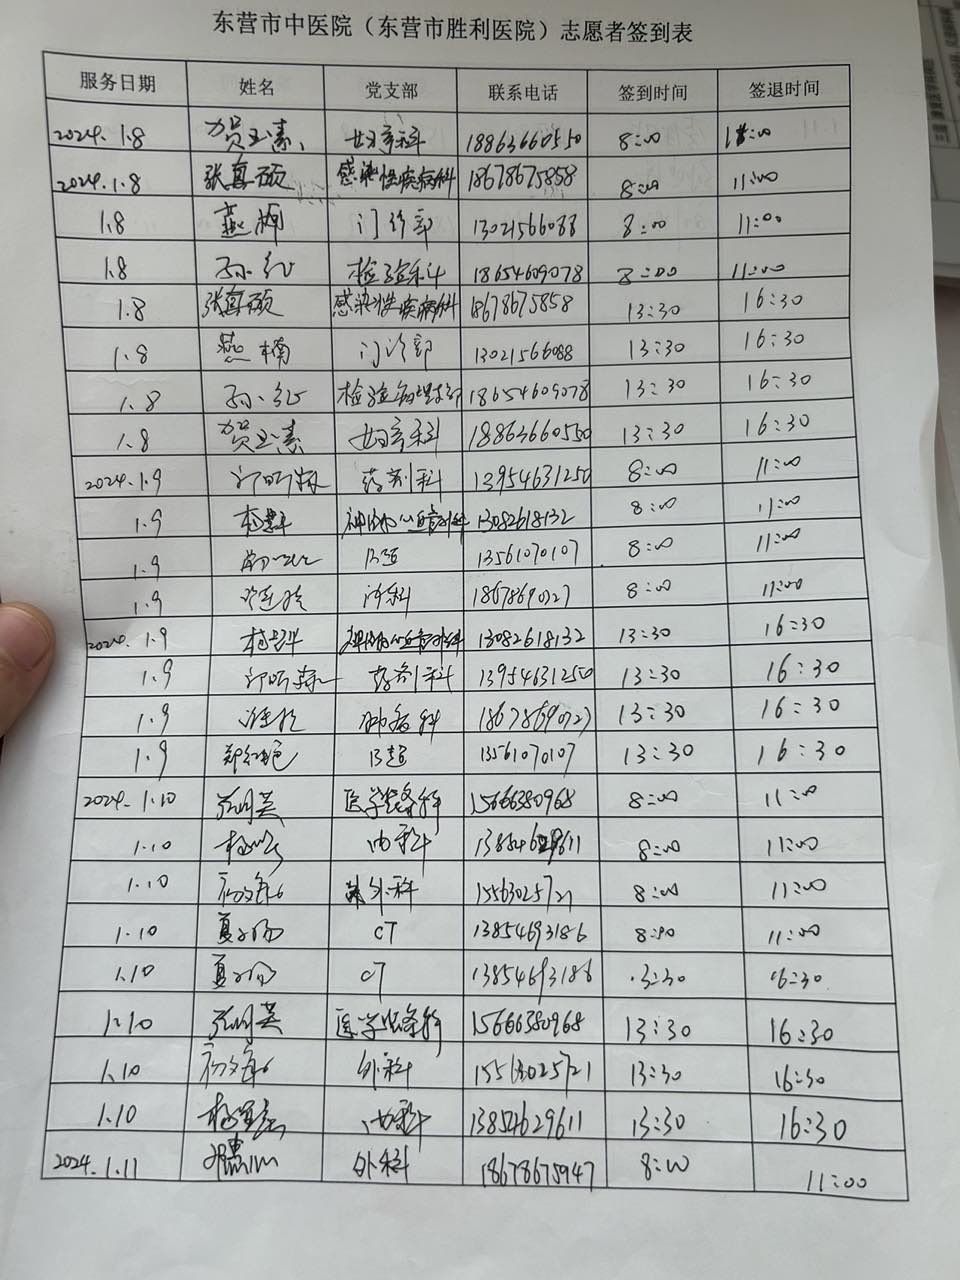 东营市中医院（东营市胜利医院）志愿者签到表
服务日期 姓名 党支部 联系电话 签到时间 签退时间
2024.1.8 贺玉素 妇产科 18863660550 8:00 11:00
2024.1.8 张真硕 感染性疾病科 18678675858 8:00 11:00
1.8 燕楠 门诊部 13021566088 8:00 11:00
1.8 孙红 检验科 18654609078 8:00 11:00
1.8 张真硕 感染性疾病科 18678675858 13:30 16:30
1.8 燕楠 门诊部 13021566088 13:30 16:30
1.8 孙红 检验病理支部 18654609078 13:30 16:30
1.8 贺玉素 妇产科 18863660550 13:30 16:30
2024.1.9 药剂科 13954631250 8:00 11:00
1.9 13082618132 8:00 11:00
1.9 B超 13561070107 8:00 11:00
1.9 8:00 11:00
2024.1.9 13082618132 13:30 16:30
1.9 药剂科 13954631250 13:30 16:30
1.9 肿瘤科 13:30 16:30
1.9 郑红艳 B超 13561070107 13:30 16:30
2024.1.10 张月英 医学装备科 15666380968 8:00 11:00
1.10 内科 13854629611 8:00 11:00
1.10 外科 15563025721 8:00 11:00
1.10 CT 13854693186 8:00 11:00
1.10 CT 13854693186 3:30 16:30
1.10 张月英 医学装备科 15666380968 13:30 16:30
1.10 外科 15563025721 13:30 16:30
1.10 内科 13854629611 13:30 16:30
2024.1.11 外科 18678675947 8:00 11:00